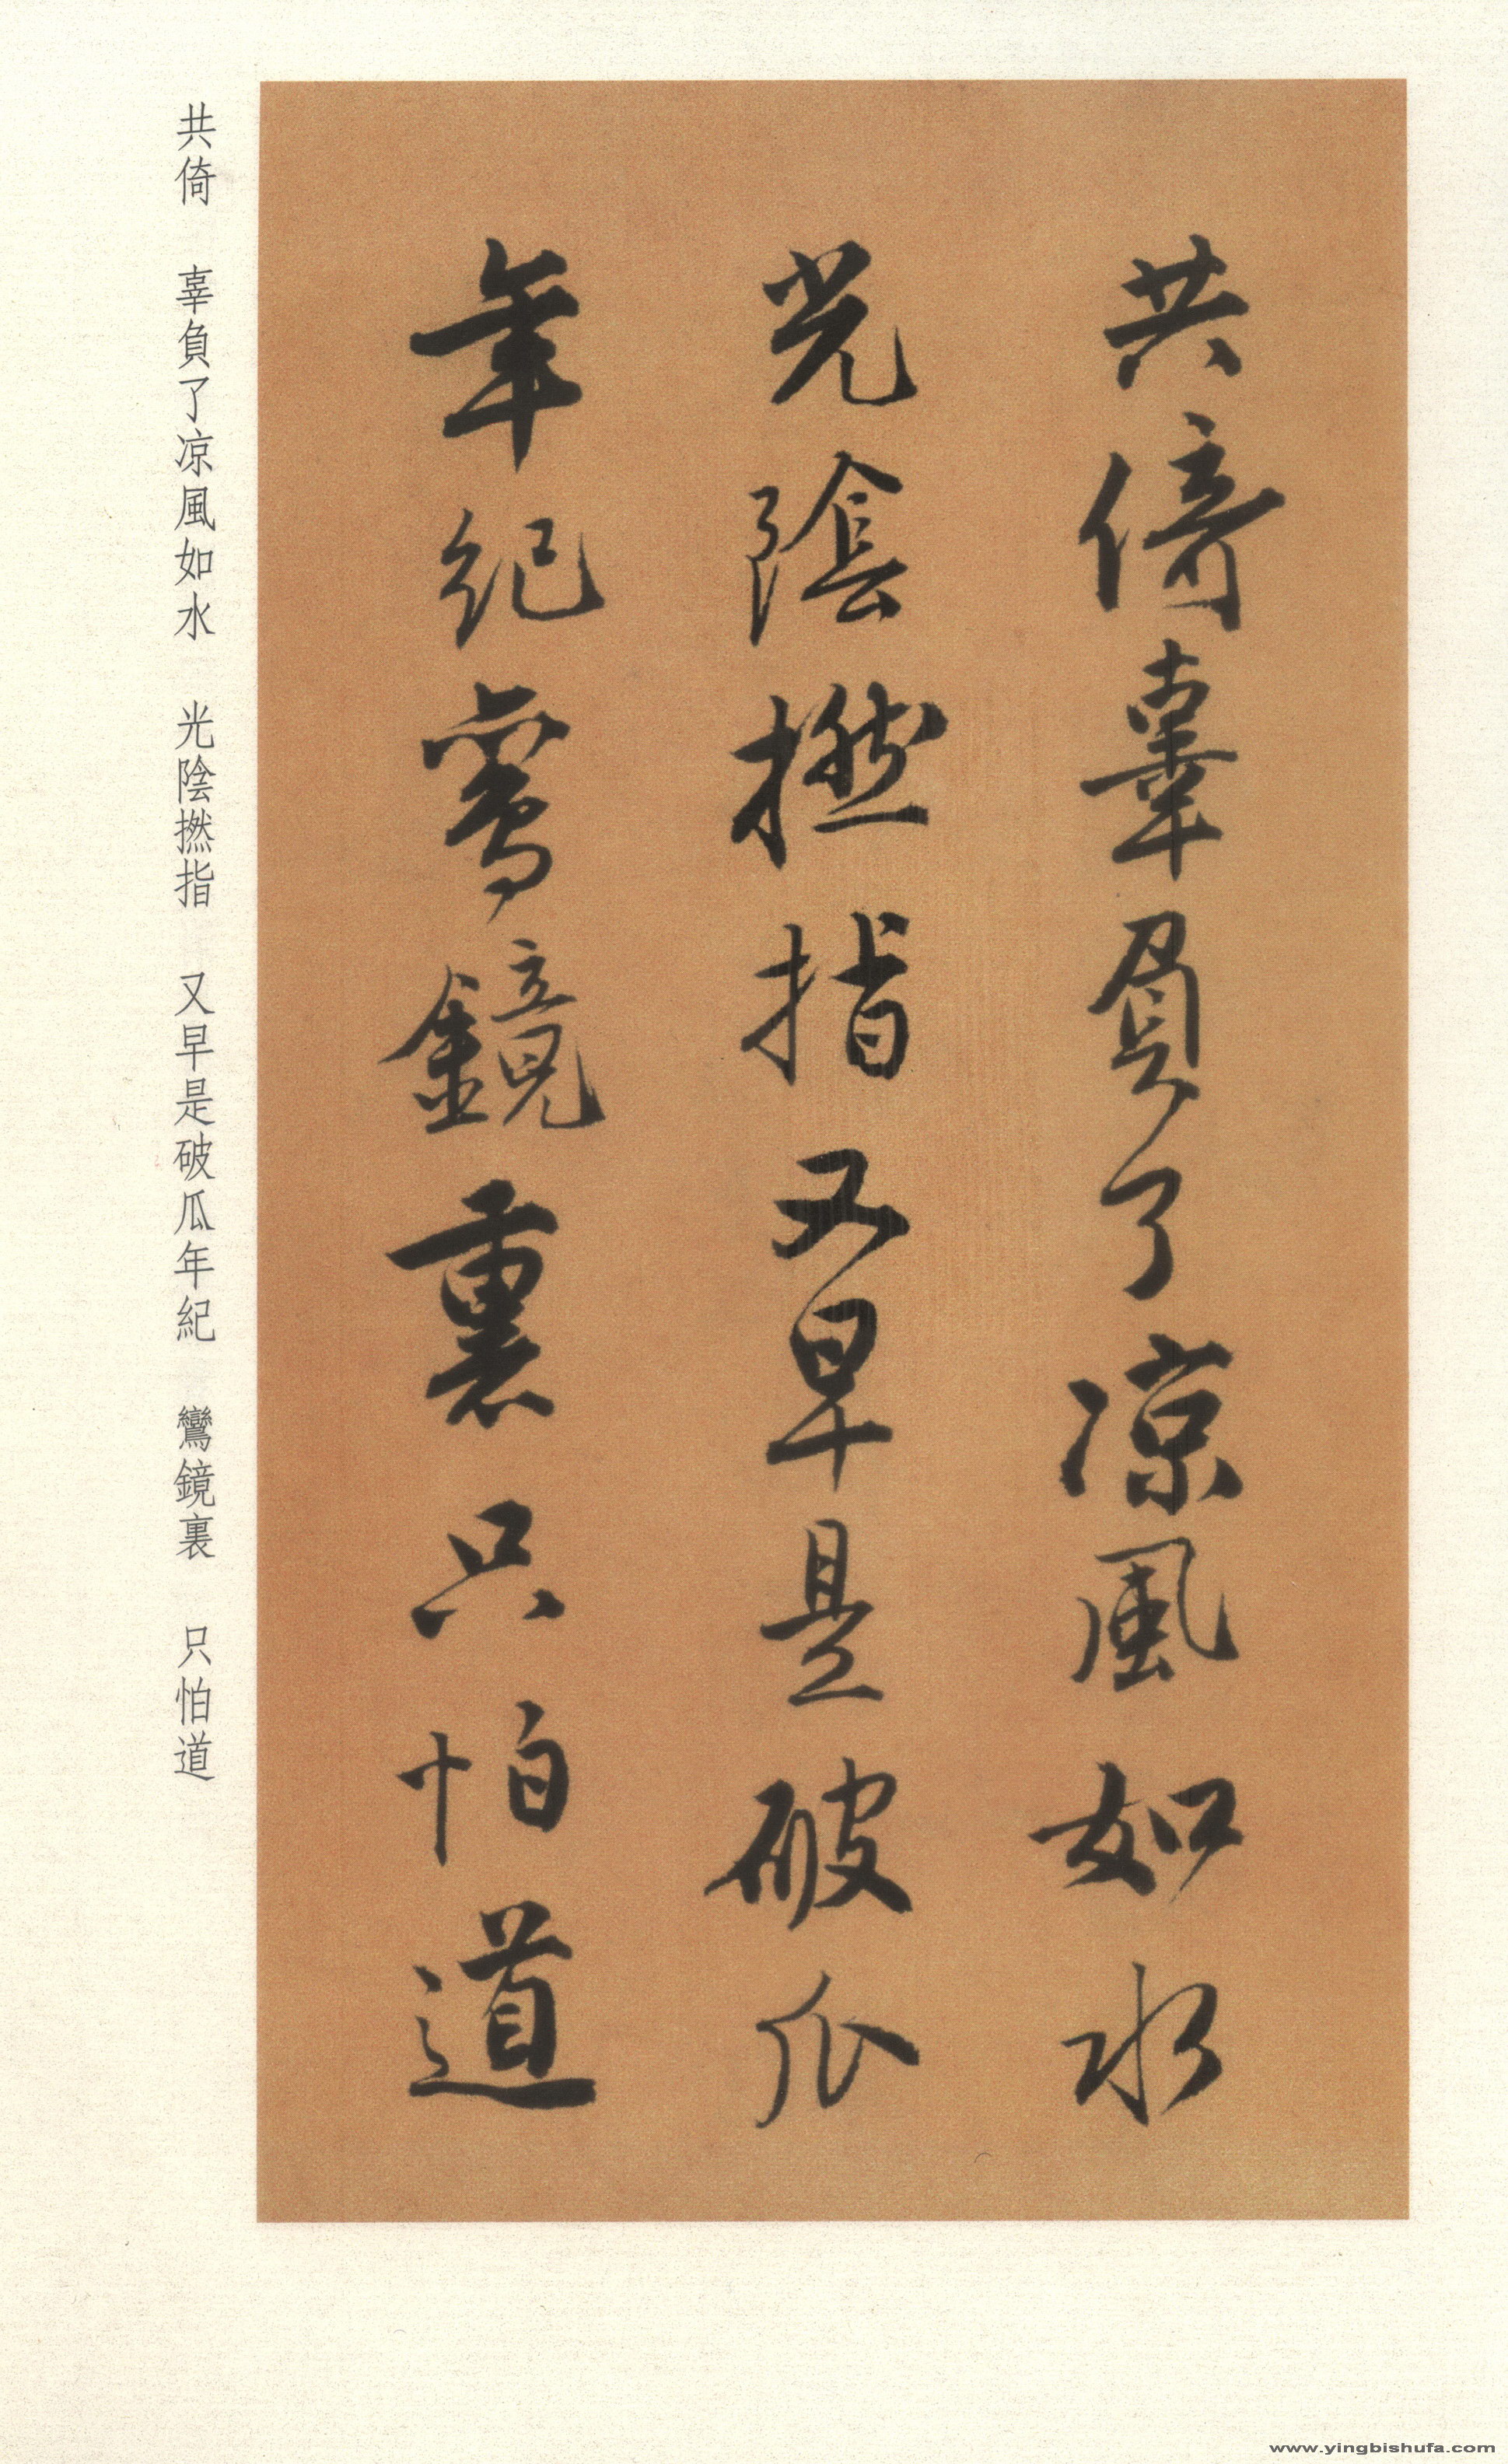 共倚辜負了凉風如水
光陰撚指又早是破瓜
年紀鸞鏡裏只怕道
共倚 辜負了凉風如水 光陰撚指 又早是破瓜年紀 鸞鏡裏 只怕道
www.yingbishufa.com